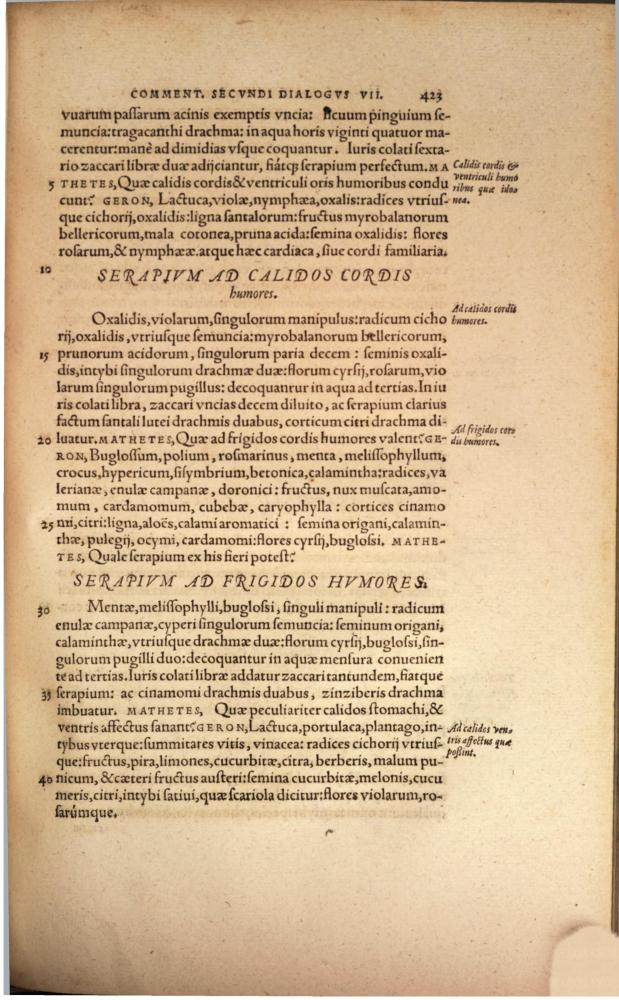 COMMENT. SECVNDI DIALOGVS VII. 423
vuarum passarum acinis exemptis vncia: ficuum pinguium se-
muncia: tragacanthi drachma: in aqua horis viginti quatuor ma-
cerentur: manè ad dimidias vsque coquantur. Iuris colati sexta-
rio zaccari libræ duæ adijciantur, fiátq; serapium perfectum. MA
5 THETES, Quæ calidis cordis & ventriculi oris humoribus condu
cunt? GERON, Lactuca, violæ, nymphæa, oxalis: radices vtrius-
que cichorij, oxalidis: ligna santalorum: fructus myrobalanorum
bellericorum, mala cotonea, pruna acida: semina oxalidis: flores
rosarum, & nymphææ. atque hæc cardiaca, siue cordi familiaria.
Calidis cordis &
ventriculi humo
ribus quæ ido-
nea.
10 SERAPIVM AD CALIDOS CORDIS
humores.
Oxalidis, violarum, singulorum manipulus: radicum cicho
rij, oxalidis, vtriusque semuncia: myrobalanorum bellericorum,
15 prunorum acidorum, singulorum paria decem: seminis oxali-
dis, intybi singulorum drachmæ duæ: florum cyrsij, rosarum, vio
larum singulorum pugillus: decoquantur in aqua ad tertias. In iu
ris colati libra, zaccari vncias decem diluito, ac serapium clarius
factum santali lutei drachmis duabus, corticum citri drachma di-
20 luatur. MATHETES, Quæ ad frigidos cordis humores valent? GE-
RON, Buglossum, polium, rosmarinus, menta, melissophyllum,
crocus, hypericum, sisymbrium, betonica, calamintha: radices, va
lerianæ, enulæ campanæ, doronici: fructus, nux muscata, amo-
mum, cardamomum, cubebæ, caryophylla: cortices cinamo
25 mi, citri: ligna, aloës, calami aromatici: semina origani, calamin-
thæ, pulegij, ocymi, cardamomi: flores cyrsij, buglossi. MATHE-
TES, Quale serapium ex his fieri potest?
Ad calidos cordis
humores.
Ad frigidos cor-
dis humores.
SERAPIVM AD FRIGIDOS HVMORES.
30 Mentæ, melissophylli, buglossi, singuli manipuli: radicum
enulæ campanæ, cyperi singulorum semuncia: seminum origani,
calaminthæ, vtriusque drachmæ duæ: florum cyrsij, buglossi, sin-
gulorum pugilli duo: decoquantur in aquæ mensura conuenien
te ad tertias. Iuris colati libræ addatur zaccari tantundem, fiatque
35 serapium: ac cinamomi drachmis duabus, zinziberis drachma
imbuatur. MATHETES, Quæ peculiariter calidos stomachi, &
ventris affectus sanant? GERON, Lactuca, portulaca, plantago, in-
tybus vterque: summitates vitis, vinacea: radices cichorij vtrius-
que: fructus, pira, limones, cucurbitæ, citra, berberis, malum pu-
40 nicum, & cæteri fructus austeri: semina cucurbitæ, melonis, cucu
meris, citri, intybi satiui, quæ scariola dicitur: flores violarum, ro-
sarúmque.
Ad calidos ven-
tris affectus quæ
possint.